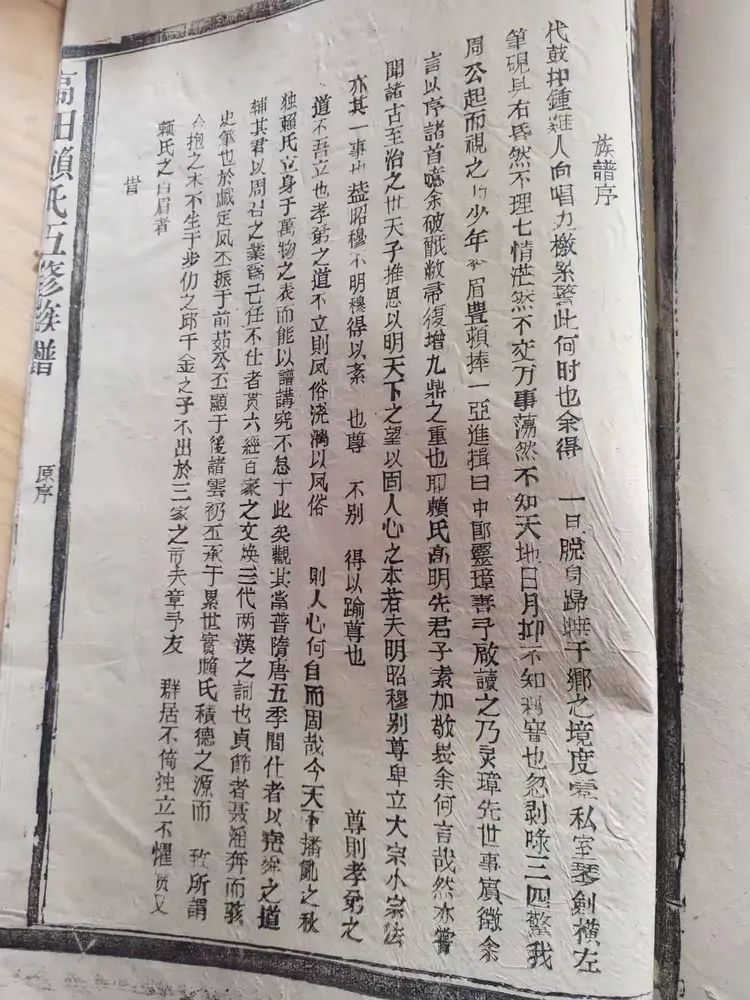 族譜序
代鼓抑鍾雞人向唱九檄纍驚此何时也余得 一旦脱身歸晽于鄉之境度雲私室琴劍橫左
筆硯具右昏然不理七情茫然不交万事蕩然不知天地日月抑不知利害也忽剥啄三四驚我
周公起而視之 少年 眉豊頼捧一亞進揖曰中郎靈璋書予啟讀之乃灵璋先世事實徵余
言以序諸首噫余破甑敝帚復增九鼎之重也耶賴氏高明先君子素加敬畏余何言哉然亦嘗
聞諸古至治之世天子推恩以明天下之望以固人心之本若夫明昭穆别尊卑立大宗小宗法
亦其一事也益昭穆不明穆得以紊 也尊 不别 得以踰尊也 尊則孝弟之
道不吾立也孝弟之道不立則風俗澆漓以风俗 則人心何自而固哉今天下播亂之秋
独賴氏立身于萬物之表而能以譜講究不怠于此矣觀其當晉隋唐五季間仕者以堯舜之道
辅其君以周召之業爲己任不仕者贯六經百家之文焕三代两漢之詞也貞節者聂滛奔而駭
史筆也於戲定风丕振于前茹公丕顯于後諸雲礽丕承于累世實賴氏積德之源而 致所謂
合抱之木不生于步仞之邱千金之子不出於三家之市夫章予友 群居不倚独立不懼 又
賴氏之白眉者
旹
高田賴氏五修族譜
原序